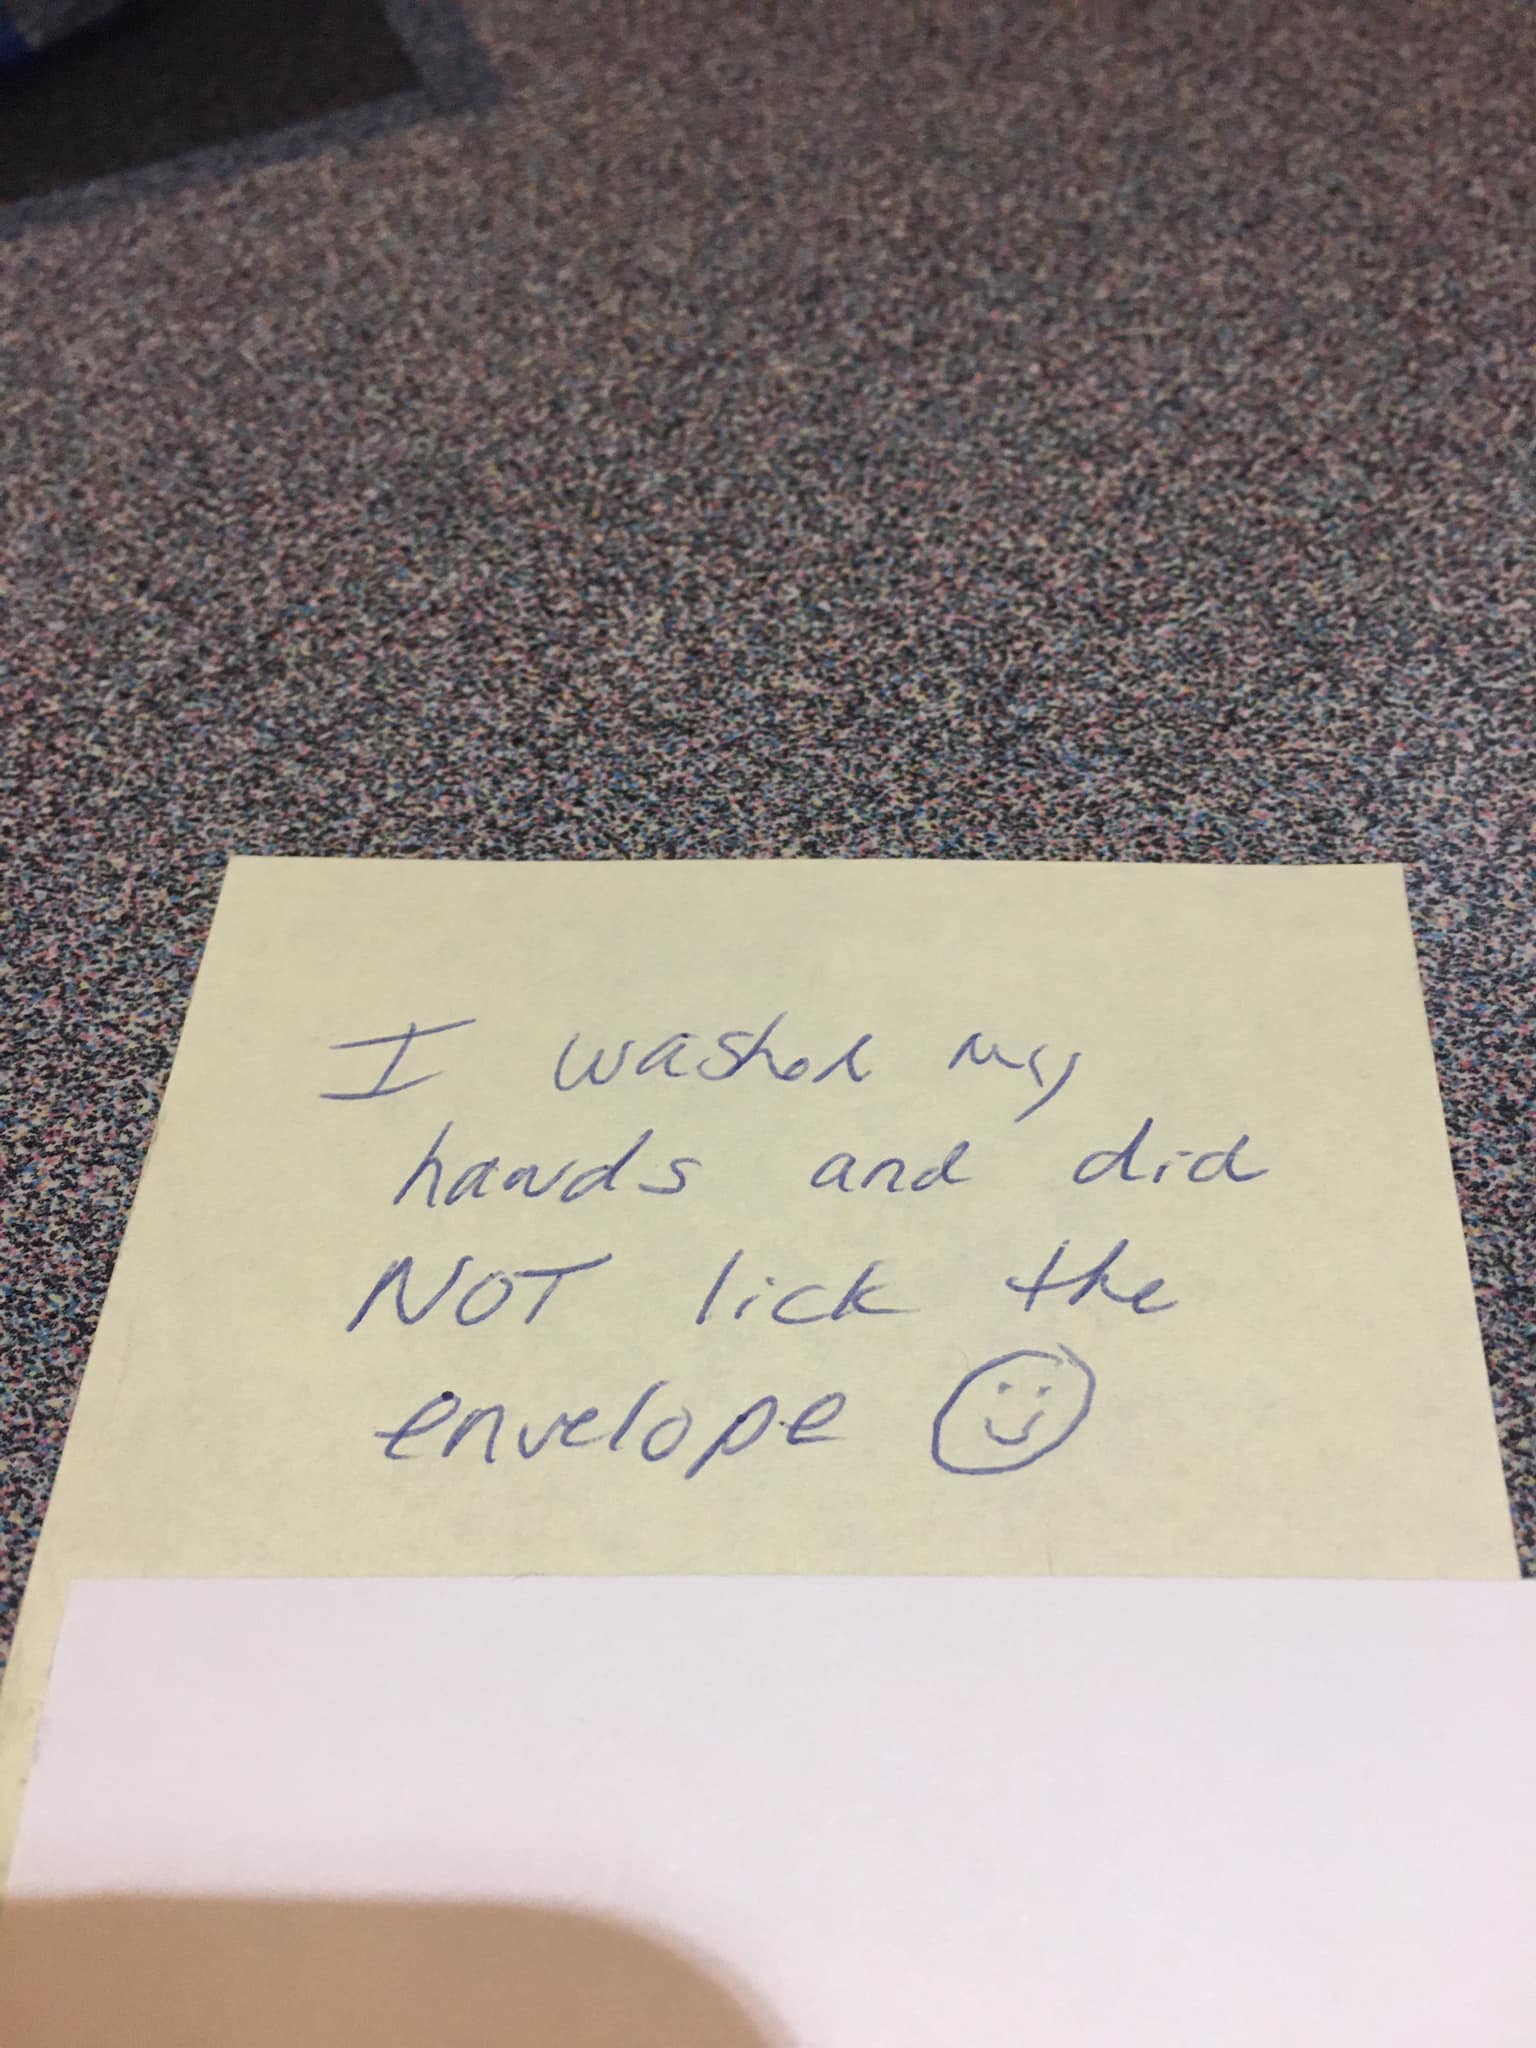 I washed my
hands and did
NOT lick the
envelope